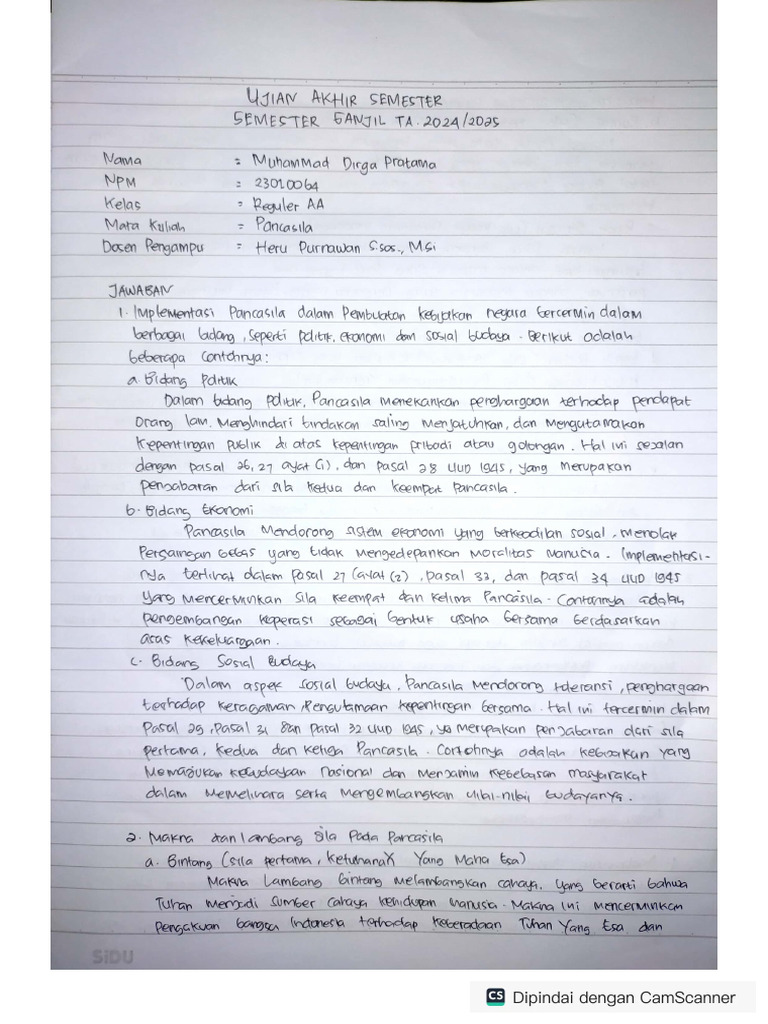 UJIAN AKHIR SEMESTER
SEMESTER GANJIL TA. 2024/2025
Nama : Muhammad Dirga Pratama
NPM : 23010064
Kelas : Reguler AA
Mata Kuliah = Pancasila
Dosen Pengampu = Heru Purnawan S.sos., M.Si
JAWABAN
1. Implementasi Pancasila dalam Pembuatan kebijakan negara tercermin dalam
berbagai bidang, seperti politik, ekonomi dan sosial budaya. Berikut adalah
beberapa contohnya:
a. Bidang Politik
Dalam bidang politik, Pancasila menekankan penghargaan terhadap pendapat
orang lain, Menghindari tindakan saling menjatuhkan, dan Mengutamakan
kepentingan publik di atas kepentingan pribadi atau golongan. Hal ini sejalan
dengan pasal 26, 27 ayat (1), dan pasal 28 UUD 1945, yang merupakan
penjabaran dari sila kedua dan keempat Pancasila.
b. Bidang Ekonomi
Pancasila Mendorong sistem ekonomi yang berkeadilan sosial, menolak
Persaingan bebas yang tidak Mengedepankan Moralitas Manusia. Implementasi-
nya terlihat dalam Pasal 27 (ayat (2), pasal 33, dan pasal 34 UUD 1945
yang mencerminkan Sila Keempat dan kelima Pancasila. Contohnya adalah
pengembangan koperasi sebagai bentuk usaha bersama berdasarkan
asas kekeluargaan.
c. Bidang Sosial Budaya
Dalam aspek sosial budaya, Pancasila Mendorong toleransi, penghargaan
terhadap keragaman, Pengutamaan kepentingan bersama. Hal ini tercermin dalam
Pasal 29, Pasal 31 dan pasal 32 UUD 1945, yg merupakan penjabaran dari sila
pertama, kedua dan ketiga Pancasila. Contohnya adalah kebijakan yang
Memajukan kebudayaan nasional dan menjamin kebebasan masyarakat
dalam memelihara serta mengembangkan nilai-nilai budayanya.
2. Makna dan lambang Sila Pada Pancasila
a. Bintang (Sila pertama, Ketuhanan Yang Maha Esa)
Makna Lambang bintang melambangkan cahaya, yang berarti bahwa
Tuhan menjadi sumber cahaya kehidupan manusia. Makna ini mencerminkan
pengakuan bangsa Indonesia terhadap keberadaan Tuhan Yang Esa dan
SiDU
CS Dipindai dengan CamScanner